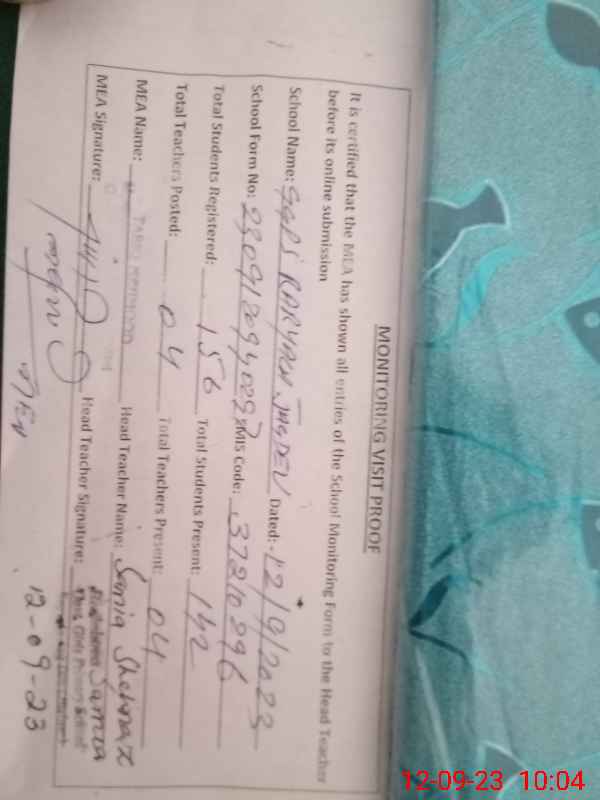 MONITORING VISIT PROOF
It is certified that the MEA has shown all entries of the School Monitoring Form to the Head Teacher
before its online submission
School Name: GGPS Dated:- 12/9/2023
School Form No: EMIS Code: 37210396
Total Students Registered: 156 Total Students Present: 142
Total Teachers Posted: 04 Total Teachers Present: 04
MEA Name: Head Teacher Name: Sonia Shehnaz
MEA Signature: Head Teacher Signature: Samia
12-09-23
12-09-23 10:04